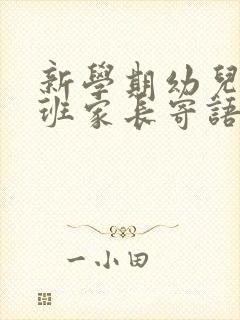 新學期幼兒
班家長寄語
一小田